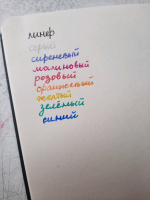 линер
серый
сиреневый
малиновый
розовый
оранжевый
желтый
зелёный
синий